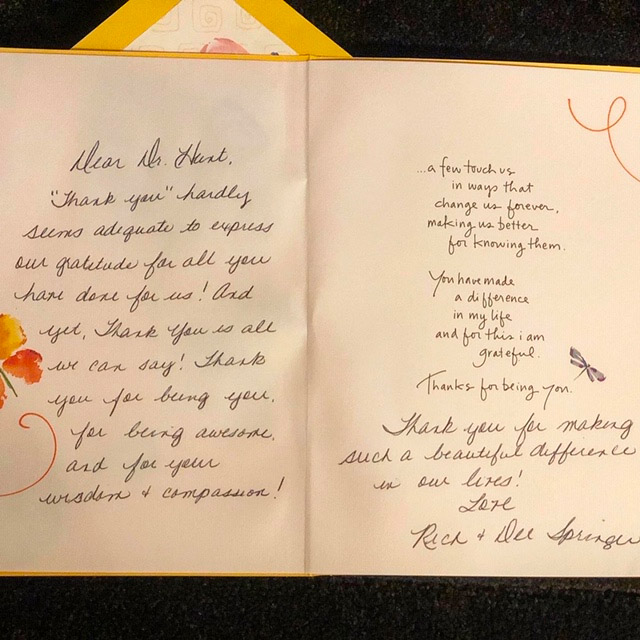 Dear Dr. Hunt,
"Thank you" hardly
seems adequate to express
our gratitude for all you
have done for us! And
yet, Thank You is all
we can say! Thank
you for being you,
for being awesome,
and for your
wisdom + compassion!
...a few touch us
in ways that
change us forever,
making us better
for knowing them.
You have made
a difference
in my life
and for this i am
grateful.
Thanks for being you.
Thank you for making
such a beautiful difference
in our lives!
Love
Rich + Dee Springer